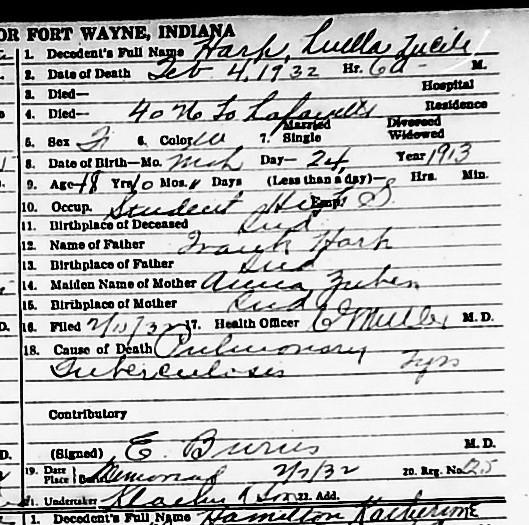 OR FORT WAYNE, INDIANA
1. Decedent's Full Name Harp, Luella Lucile
2. Date of Death Feb 4, 1932 Hr. M.
3. Died— Hospital
4. Died— 40 No Lafayette Residence
5. Sex F 6. Color W 7. Married Single Divorced Widowed
8. Date of Birth—Mo. Mch Day— 24 Year 1913
9. Age 18 Yrs 10 Mos. 11 Days (Less than a day)— Hrs. Min.
10. Occup. Student High S. Emp.
11. Birthplace of Deceased Ind
12. Name of Father Frank Harp
13. Birthplace of Father Ind
14. Maiden Name of Mother Anna
15. Birthplace of Mother Ind
16. Filed 2/10/32 17. Health Officer E Muller M. D.
18. Cause of Death Pulmonary
Tuberculosis yrs
Contributory
(Signed) E. Burns M. D.
19. Date Place Memorial 2/7/32 20. Reg. No. 125
21. Undertaker Klaehn & Son 22. Add.
1. Decedent's Full Name Hamilton Katherine